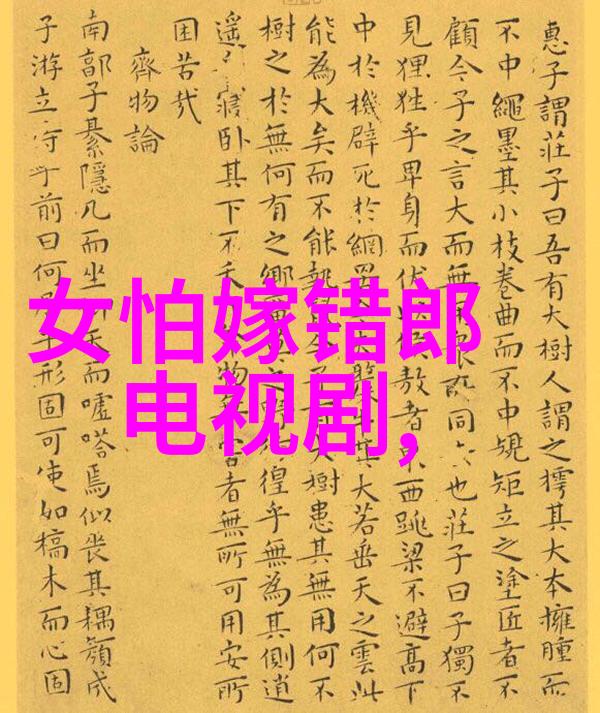 惠子謂莊子曰吾有大樹人謂之樗其大本擁腫而
不中繩墨其小枝卷曲而不中規矩立之塗匠者不
顧今子之言大而無眾所同也莊子曰子獨不
見狸狌乎卑身而伏敖者東西跳梁不避高下
中於機辟死於網大若垂天之雲此
能為大矣而不能執大樹患其無用何不
樹之於無何有之鄉徨乎無為其側逍
遙寢臥其下不物害者無所可用安所
困苦哉
齊物論
南郭子綦隱几而坐天而噓嗒焉似喪其耦顏成
子游立侍乎前曰何形固可使如槁木而心固
女怕嫁错郎
电视剧,